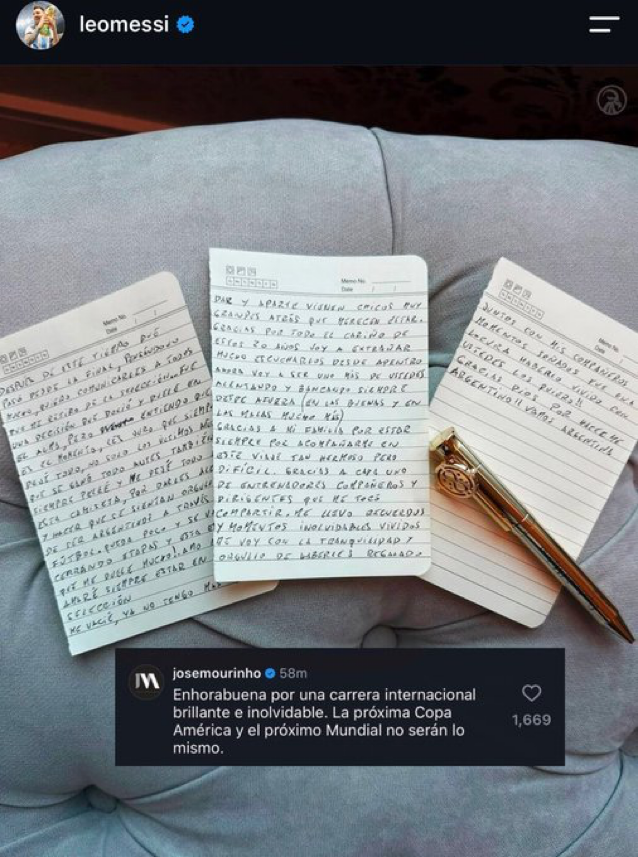 leomessi
Memo No.
Date / /
DESPUES DE ESTE TIEMPO QUE
PASO DESDE LA FINAL, PENSANDOLO
MUCHO, QUIERO COMUNICARLES A TODOS
QUE ME RETIRO DE LA SELECCION. FUE
UNA DECISION QUE DOLIO Y DUELE EN
EL ALMA, PERO ENTIENDO QUE
ES EL MOMENTO. LES JURO QUE SIEMPRE
DEJE TODO, NO SOLO LOS ULTIMOS
QUE SE GANO TODO ANTES TAMBIEN
SIEMPRE PELEE Y ME DEJE TODO
ESTA CAMISETA, POR DARLES
Y HACER QUE SE SIENTAN
DE SER ARGENTINOS A TRAVES
FUTBOL. QUEDA POCO Y SE
CERRANDO ETAPAS Y ESTA
QUE ME DUELE MUCHO! AMO
AMARE SIEMPRE ESTAR EN
SELECCION
ME VACIE, YA NO TENGO
Memo No.
Date / /
DAR Y APARTE VIENEN CHICOS MUY
GRANDES ATRAS QUE MERECEN ESTAR.
GRACIAS POR TODO EL CARIÑO DE
ESTOS 20 AÑOS VOY A EXTRAÑAR
MUCHO ESCUCHARLOS DESDE ADENTRO
AHORA VOY A SER UNO MAS DE USTEDES
ALENTANDO Y BANCANDO SIEMPRE
DESDE AFUERA (EN LAS BUENAS Y EN
LAS MALAS MUCHO MAS)
GRACIAS A MI FAMILIA POR ESTAR
SIEMPRE POR ACOMPAÑARME EN
ESTE VIAJE TAN HERMOSO PERO
DIFICIL. GRACIAS A CADA UNO
DE ENTRENADORES COMPAÑEROS Y
DIRIGENTES QUE ME TOCO
COMPARTIR. ME LLEVO RECUERDOS
Y MOMENTOS INOLVIDABLES VIVIDOS
ME VOY CON LA TRANQUILIDAD Y
ORGULLO DE HABERLES REGALADO
Memo No.
Date / /
JUNTOS CON MIS COMPAÑEROS
MOMENTOS SOÑADOS FUE UNA
LOCURA HABERLO VIVIDO CON
USTEDES LOS QUIERO!!
GRACIAS DIOS POR HACERME
ARGENTINO!! VAMOS ARGENTINA
josemourinho 58m
Enhorabuena por una carrera internacional
brillante e inolvidable. La próxima Copa
América y el próximo Mundial no serán lo
mismo.
1,669